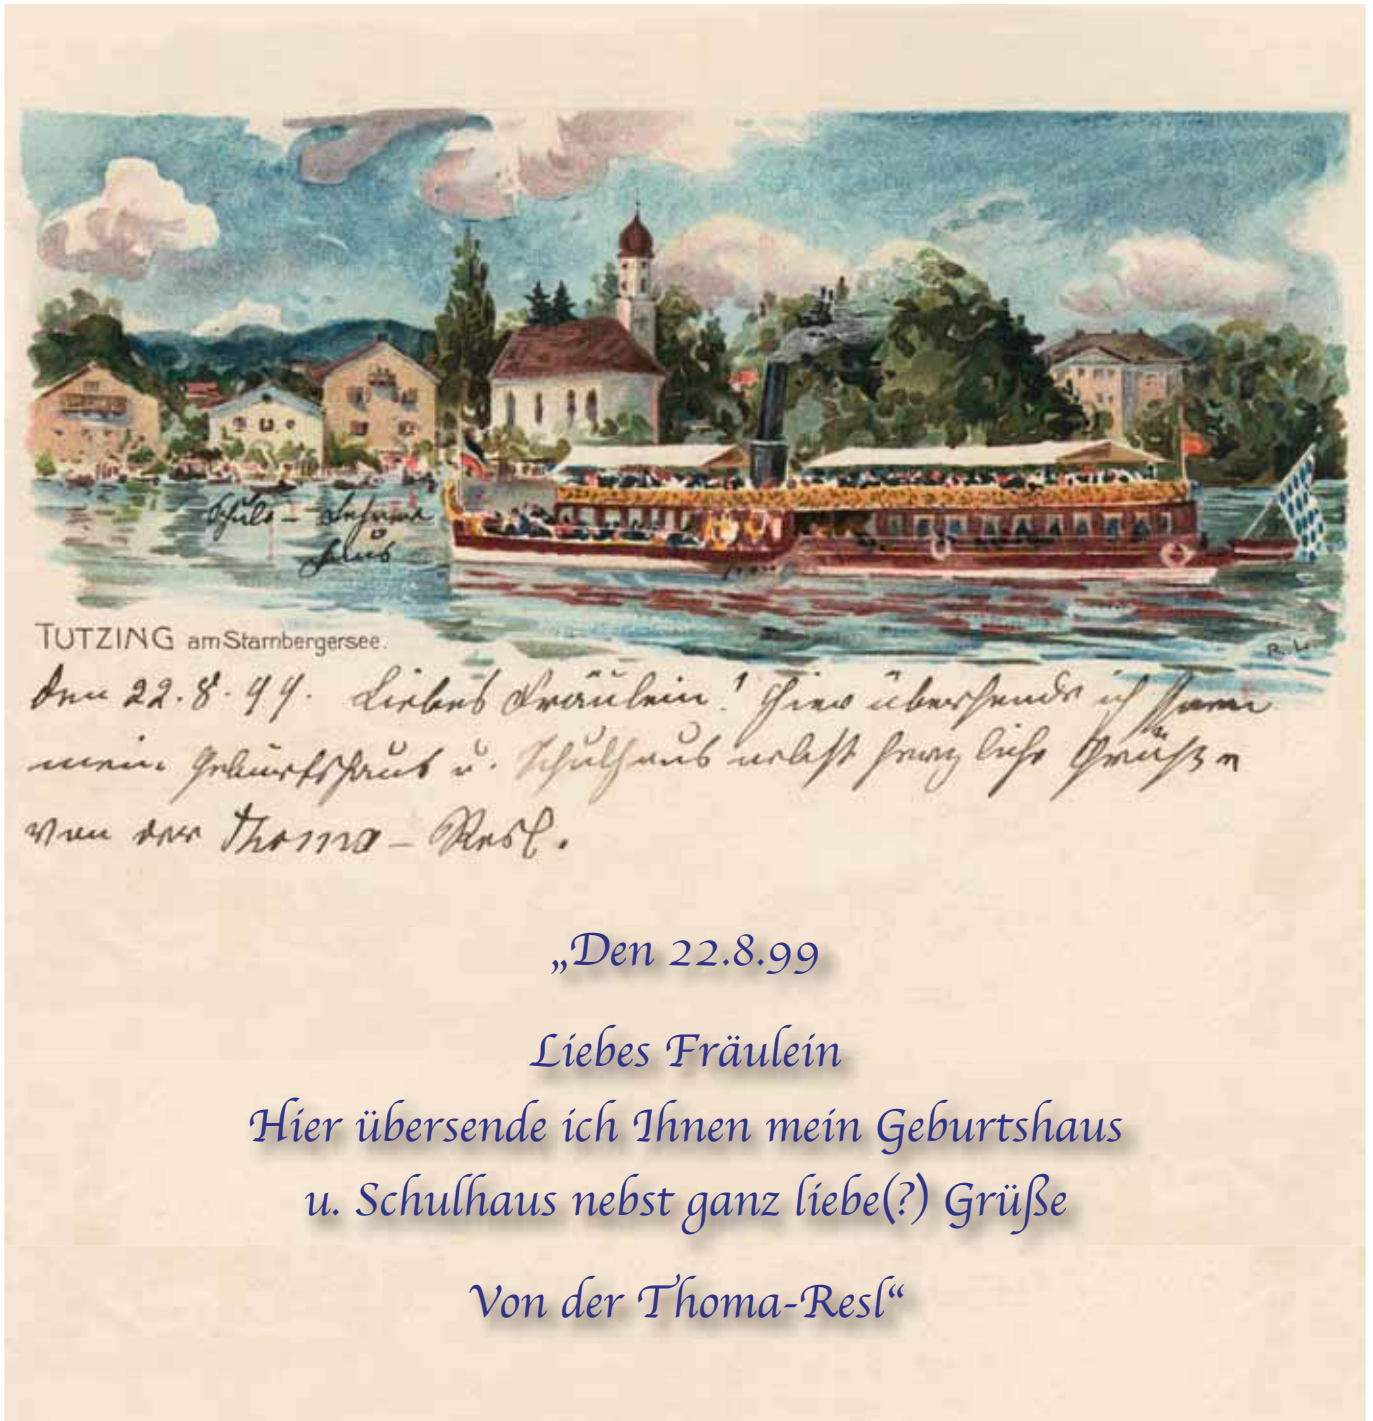 Haus
TUTZING am Starnbergersee.
R. L.
Den 22.8.99. Liebes Fräulein! Hier übersende ich Ihnen
mein Geburtshaus u. Schulhaus nebst herzliche Grüße
von der Thoma – Resl.
„Den 22.8.99
Liebes Fräulein
Hier übersende ich Ihnen mein Geburtshaus
u. Schulhaus nebst ganz liebe(?) Grüße
Von der Thoma-Resl“